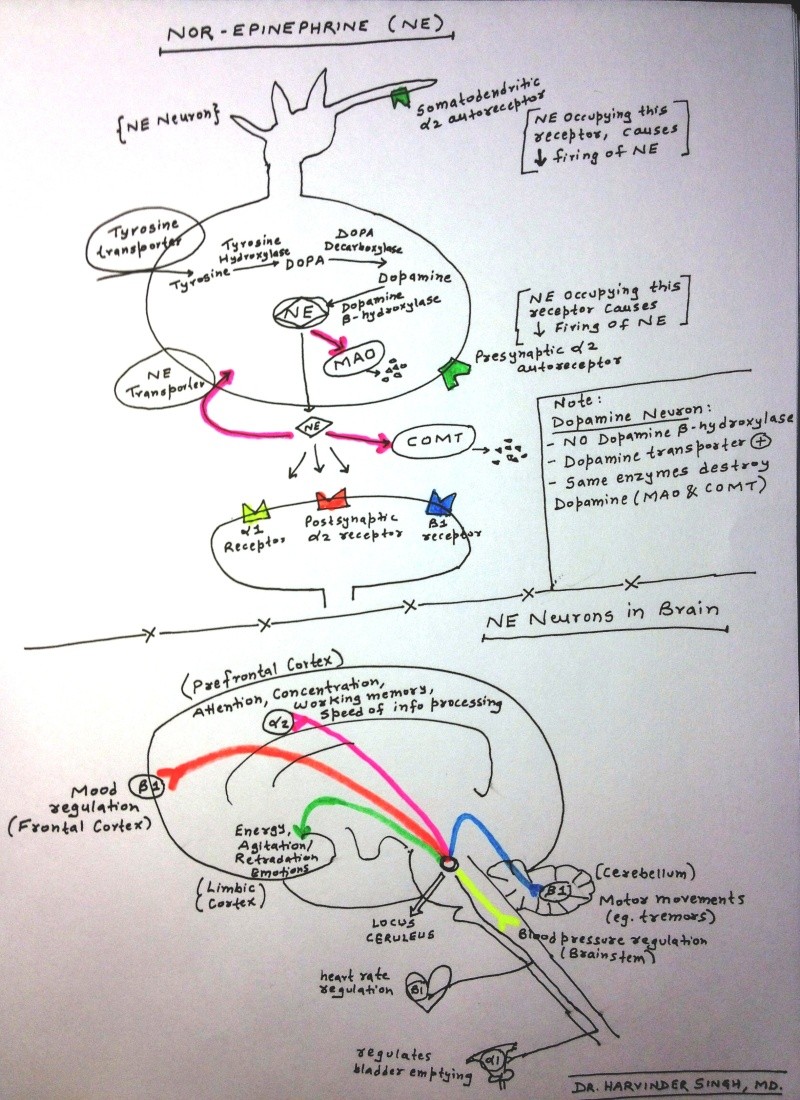 NOR-EPINEPHRINE (NE)
{NE Neuron}
Somatodendritic
α2 autoreceptor
[NE Occupying this
receptor, causes
↓ firing of NE]
Tyrosine
transporter
Tyrosine
Tyrosine
Hydroxylase
DOPA
DOPA
Decarboxylase
Dopamine
Dopamine
β-hydroxylase
NE
MAO
[NE Occupying this
receptor causes
↓ Firing of NE]
Presynaptic α2
autoreceptor
NE
Transporter
NE
COMT
α1
Receptor
Postsynaptic
α2 receptor
β1
receptor
Note:
Dopamine Neuron:
- NO Dopamine β-hydroxylase
- Dopamine transporter ⊕
- Same enzymes destroy
Dopamine (MAO & COMT)
NE Neurons in Brain
(Prefrontal Cortex)
Attention, Concentration,
Working memory,
Speed of info processing
α2
β1
Mood
regulation
(Frontal Cortex)
Energy,
Agitation/
Retradation
Emotions
(Limbic
Cortex)
LOCUS
CERULEUS
β1
(Cerebellum)
Motor movements
(eg. tremors)
Blood pressure regulation
(Brainstem)
heart rate
regulation
β1
regulates
bladder emptying
α1
DR. HARVINDER SINGH, MD.